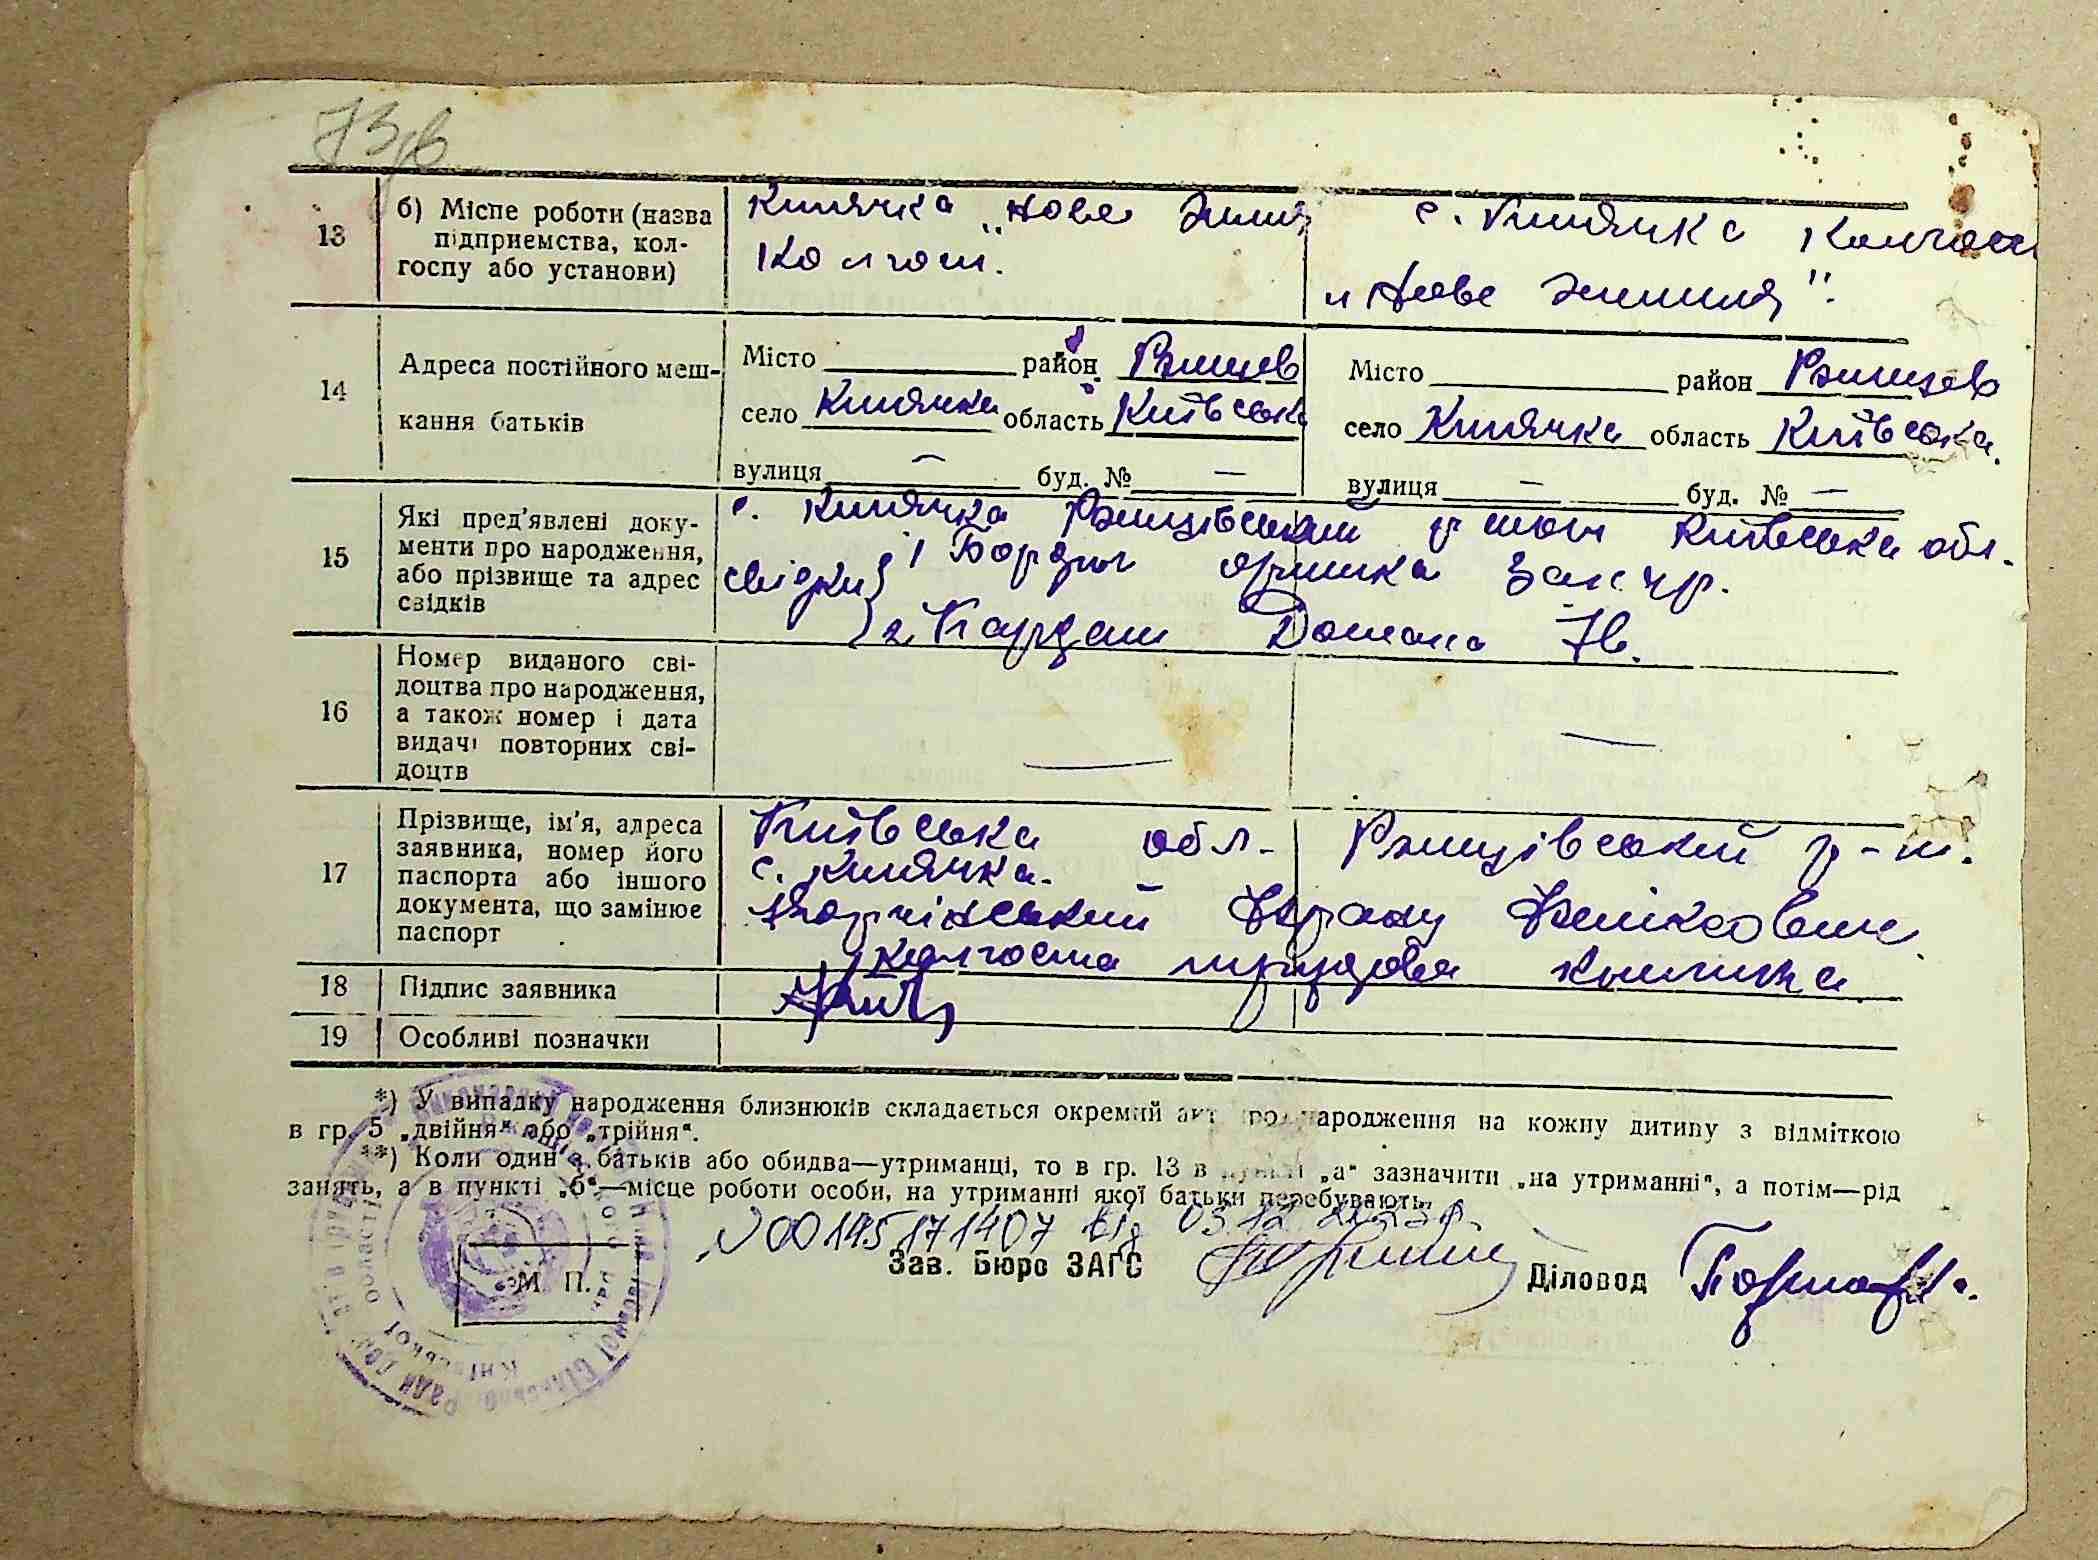 73/в
13
б) Місце роботи (назва
підприємства, кол-
госпу або установи)
Кипячка „Нове Життя
Колгосп.
с. Кипячка Колгосп
„Нове Життя".
14
Адреса постійного меш-
кання батьків
Місто район Ржищев
село Кипячка область Київська
вулиця — буд. № —
Місто район Ржищев
село Кипячка область Київська.
вулиця — буд. № —
15
Які пред'явлені доку-
менти про народження,
або прізвище та адрес
свідків
с. Кипячка Ржищівський Київська обл.
свідки 1
2
16
Номер виданого сві-
доцтва про народження,
а також номер і дата
видачі повторних сві-
доцтв
— —
17
Прізвище, ім'я, адреса
заявника, номер його
паспорта або іншого
документа, що замінює
паспорт
Київська обл. Ржищівський р-н.
с. Кипячка.
колгоспна трудова книжка
18
Підпис заявника
19
Особливі позначки
*) У випадку народження близнюків складається окремий акт про народження на кожну дитину з відміткою
в гр. 5 „двійня" або „трійня".
**) Коли один з батьків або обидва—утриманці, то в гр. 13 в пункті „а" зазначити „на утриманні", а потім—рід
занять, а в пункті „б"—місце роботи особи, на утриманні якої батьки перебувають.
N00145171407 від 03.12
Зав. Бюро ЗАГС
Діловод
М. П.